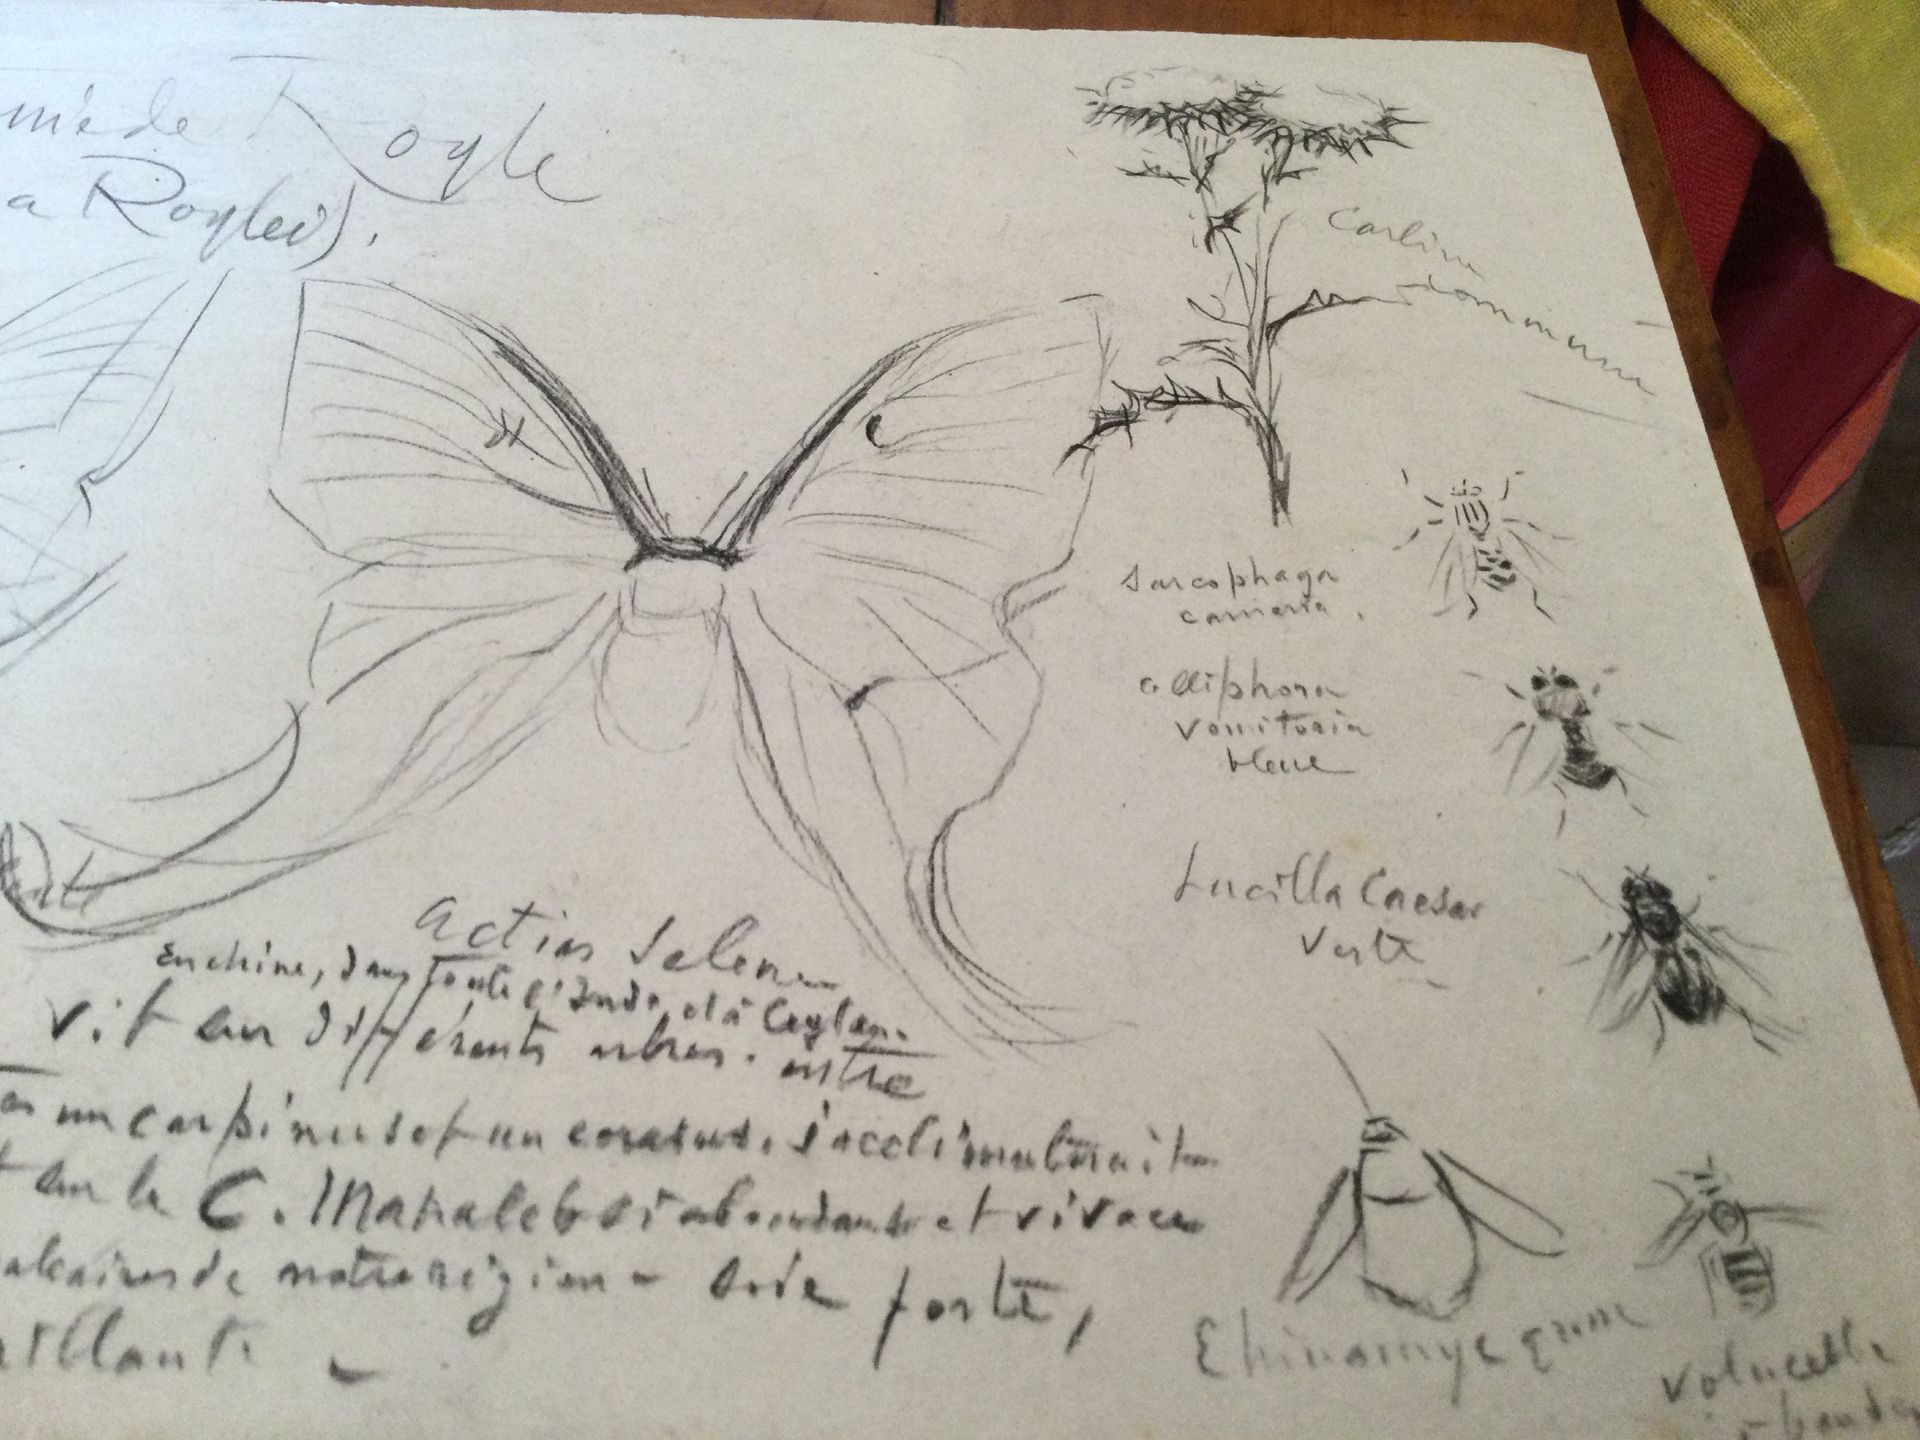 de Royle
a Roylei).
Carlina
Sarcophaga
carnaria.
Calliphora
vomitoria
bleue
Lucilla Caesar
Verte
Actias Selene
En chine, dans toute l'Inde, et à Ceylan.
vit sur différents arbres. entre
un carpinus et un cerasus. s'acclimaterait
sur le C. Mahaleb si abondant et vivace
calcaires de notre région - soie forte,
brillante
Volucelle